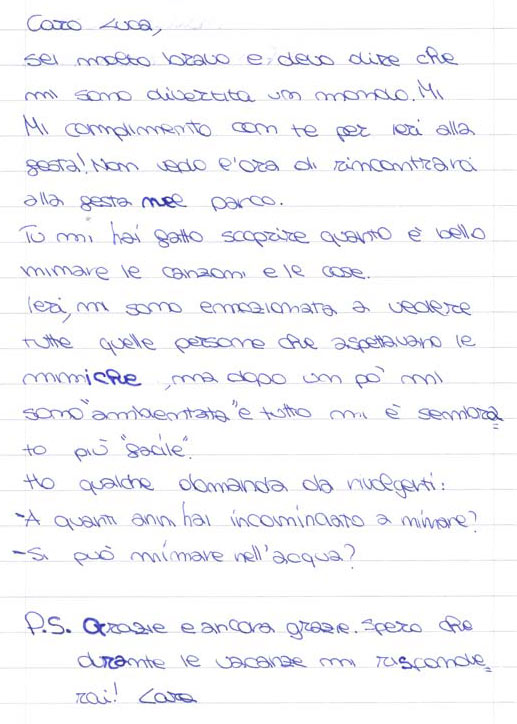 Caro Luca,
sei molto bravo e devo dire che
mi sono divertita un mondo. Mi
Mi complimento con te per ieri alla
festa! Non vedo l'ora di rincontrarci
alla festa nel parco.
Tu mi hai fatto scoprire quanto è bello
mimare le canzoni e le cose.
Ieri, mi sono emozionata a vedere
tutte quelle persone che aspettavano le
mimiche, ma dopo un pò mi
sono "ambientata" e tutto mi è sembra=
to più "facile".
Ho qualche domanda da rivolgerti:
-A quanti anni hai incominciato a mimare?
-Si può mimare nell'acqua?
P.S. Grazie e ancora grazie. Spero che
durante le vacanze mi risponde=
rai! Lara